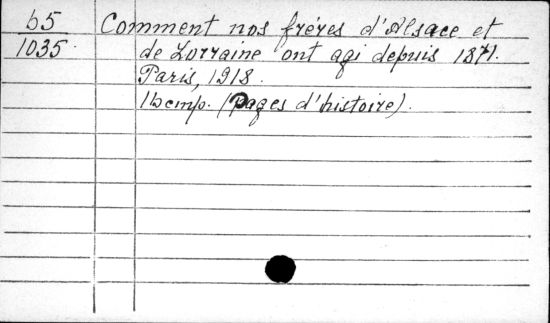 b5 Comment nos fréres d'Alsace et
1035. de Lorraine ont agi depuis 1871.
Paris, 1918.
(Pages d'histoire).